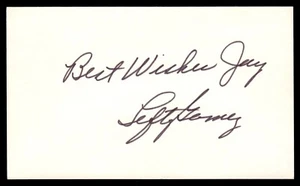 Best Wishes Jay
Lefty Gomez